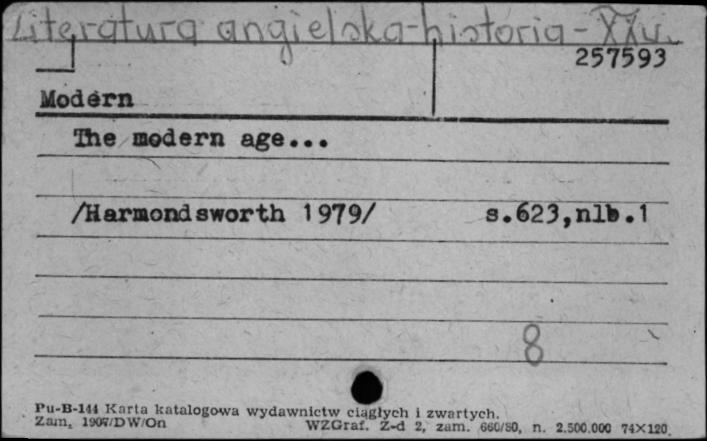 Literatura angielska-historia-XXw.
257593
Modern
The modern age...
/Harmondsworth 1979/ s.623,nlb.1
8
Pu-B-144 Karta katalogowa wydawnictw ciągłych i zwartych.
Zam. 1907/DW/On WZGraf. Z-d 2, zam. 660/80, n. 2.500.000 74×120